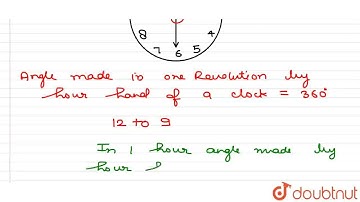 8 4
7 6 5
Angle made in one Revolution by
hour hand of a clock = 360°
12 to 9
In 1 hour angle made by
hour
doubtnut